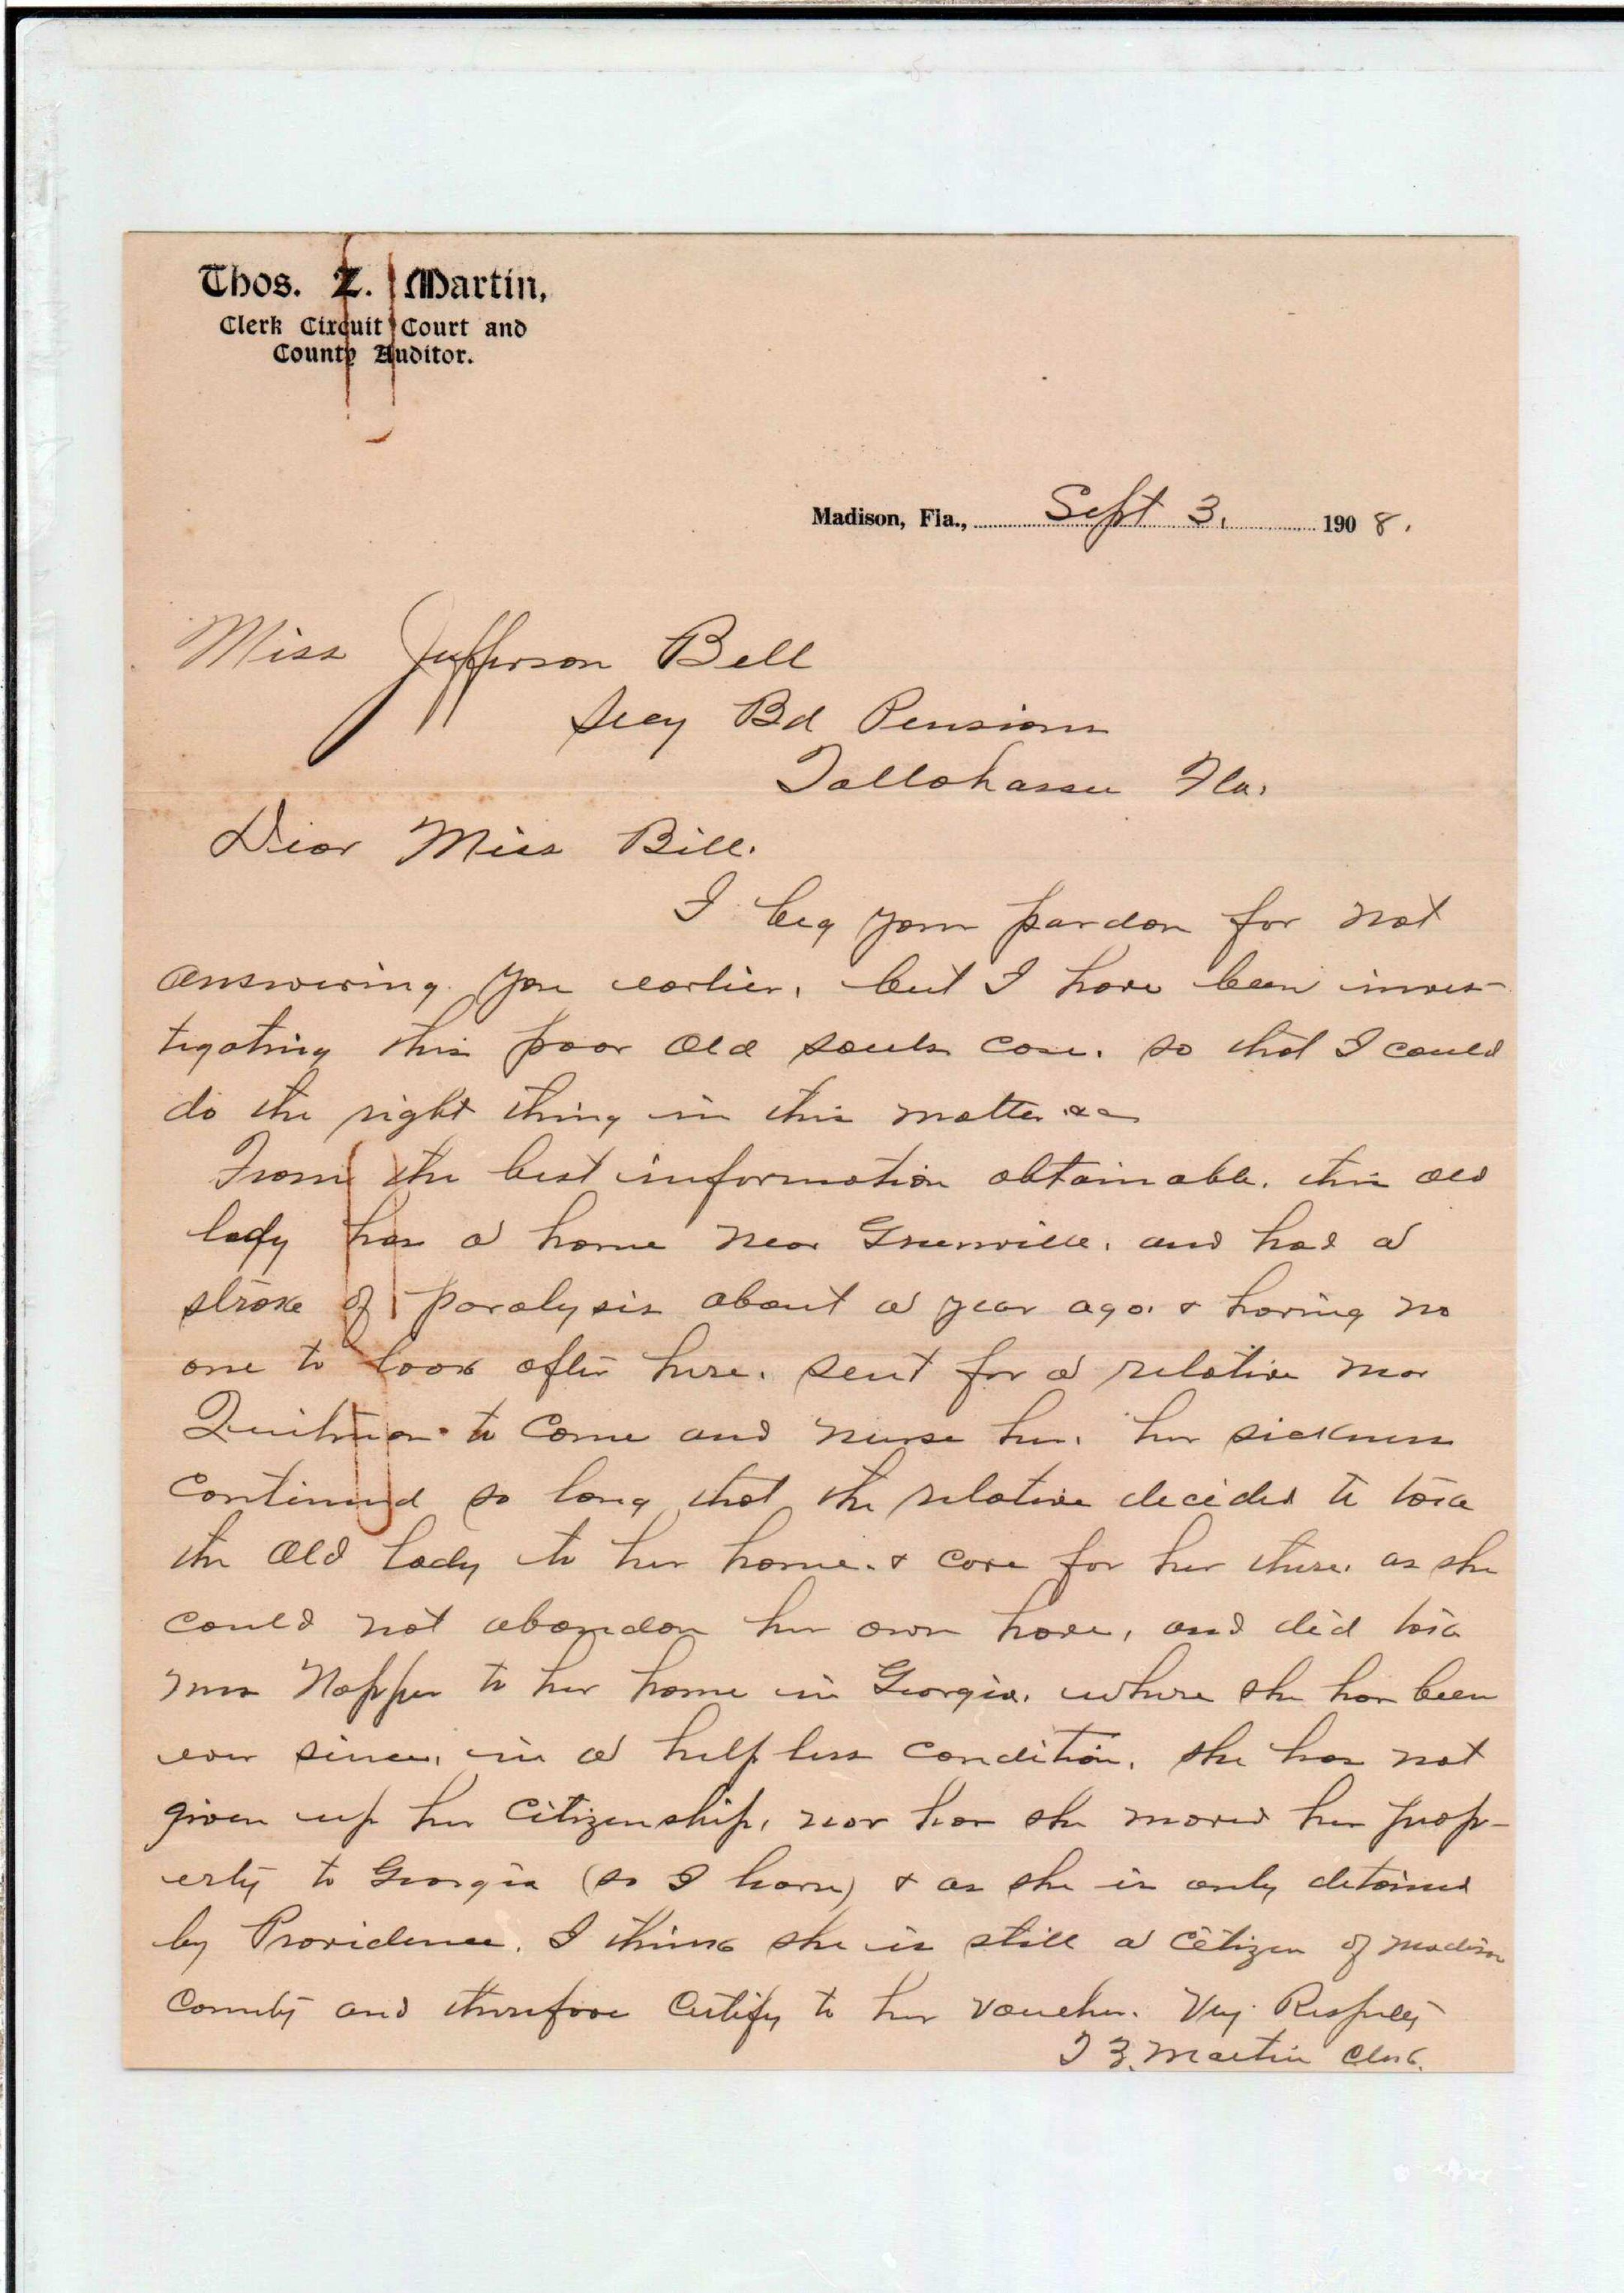 Thos. Z. Martin,
Clerk Circuit Court and
County Auditor.
Madison, Fla., Sept 3, 1908.
Miss Jefferson Bell
Secy Bd Pensions
Tallahassee Fla.
Dear Miss Bell.
I beg your pardon for not
answering you earlier, but I have been inves-
tigating this poor old souls case, so that I could
do the right thing in this matter
From the best information obtainable, this old
lady has a home near Greenville, and had a
stroke of paralysis about a year ago, & having no
one to look after here, sent for a relative near
Quitman to come and nurse her, her sickness
continued so long that the relative decided to take
the old lady to her home & care for her there, as she
could not abandon her own home, and did take
Mrs Napper to her home in Georgia, where she has been
ever since, in a helpless condition, she has not
given up her citizenship, nor has she moved her prop-
erty to Georgia (so I learn) & as she is only detained
by Providence, I think she is still a citizen of Madison
County and therefore certify to her voucher. Very Respfly
T Z. Martin Clerk.